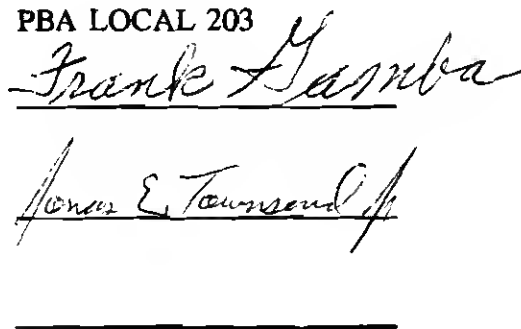 PBA LOCAL 203
Frank Gamba
Jonas E. Townsend Jr